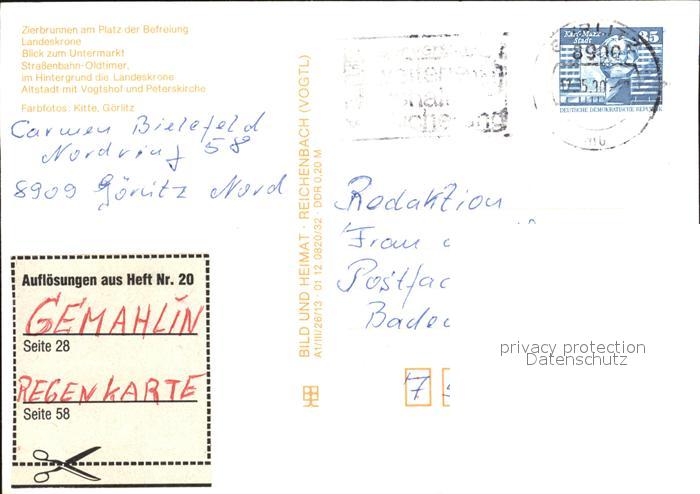 Zierbrunnen am Platz der Befreiung
Landeskrone
Blick zum Untermarkt
Straßenbahn-Oldtimer,
im Hintergrund die Landeskrone
Altstadt mit Vogtshof und Peterskirche
Farbfotos: Kitte, Görlitz
Carmen Bielefeld
Nordring 58
8909 Görlitz Nord
Auflösungen aus Heft Nr. 20
GEMAHLIN
Seite 28
REGENKARTE
Seite 58
BILD UND HEIMAT · REICHENBACH (VOGTL)
A1/III/26/13 01 12 0820/32 · DDR 0,20 M
Karl-Marx-Stadt 35
8900
DEUTSCHE DEMOKRATISCHE REPUBLIK
Redaktion
Frau
Postfac
Baden
7
privacy protection
Datenschutz